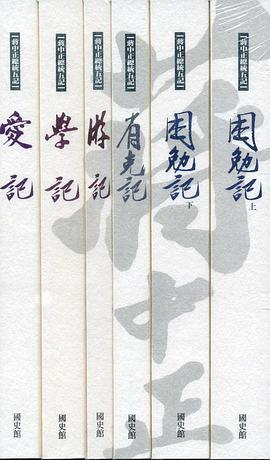 蔣中正
【蔣中正總統五記】
困勉記
上
國史館
【蔣中正總統五記】
困勉記
下
國史館
【蔣中正總統五記】
省克記
國史館
【蔣中正總統五記】
游記
國史館
【蔣中正總統五記】
學記
國史館
【蔣中正總統五記】
愛記
國史館